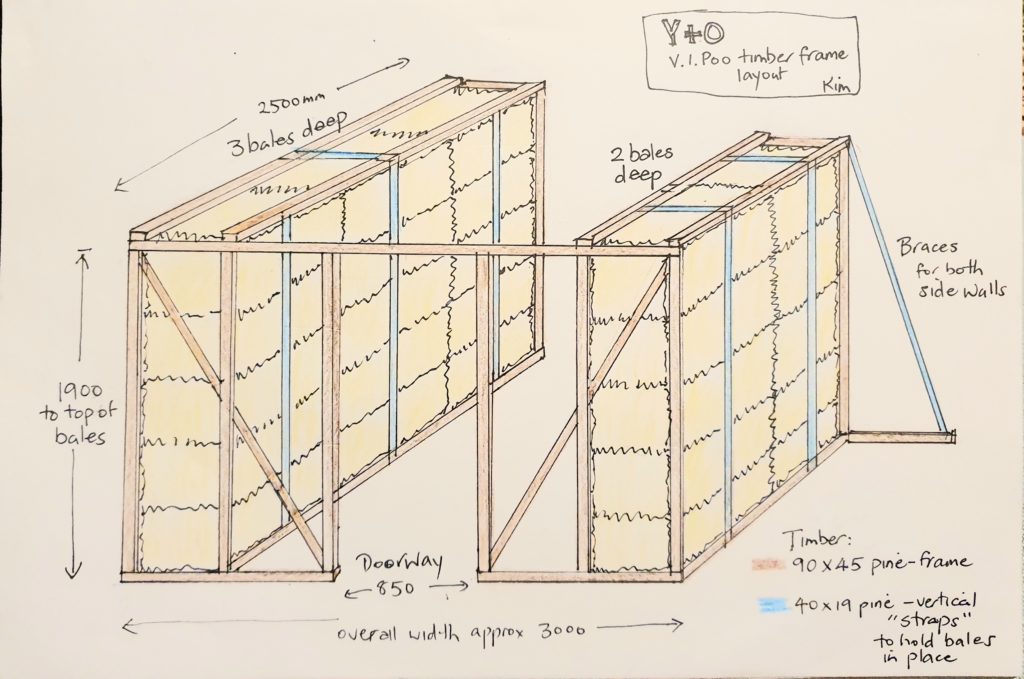 Y+O
V.I.Poo timber frame
layout
Kim
2500mm
3 bales deep
2 bales
deep
Braces
for both
side walls
1900
to top of
bales
Doorway
850
overall width approx 3000
Timber:
90x45 pine-frame
40x19 pine - vertical
"straps"
to hold bales
in place